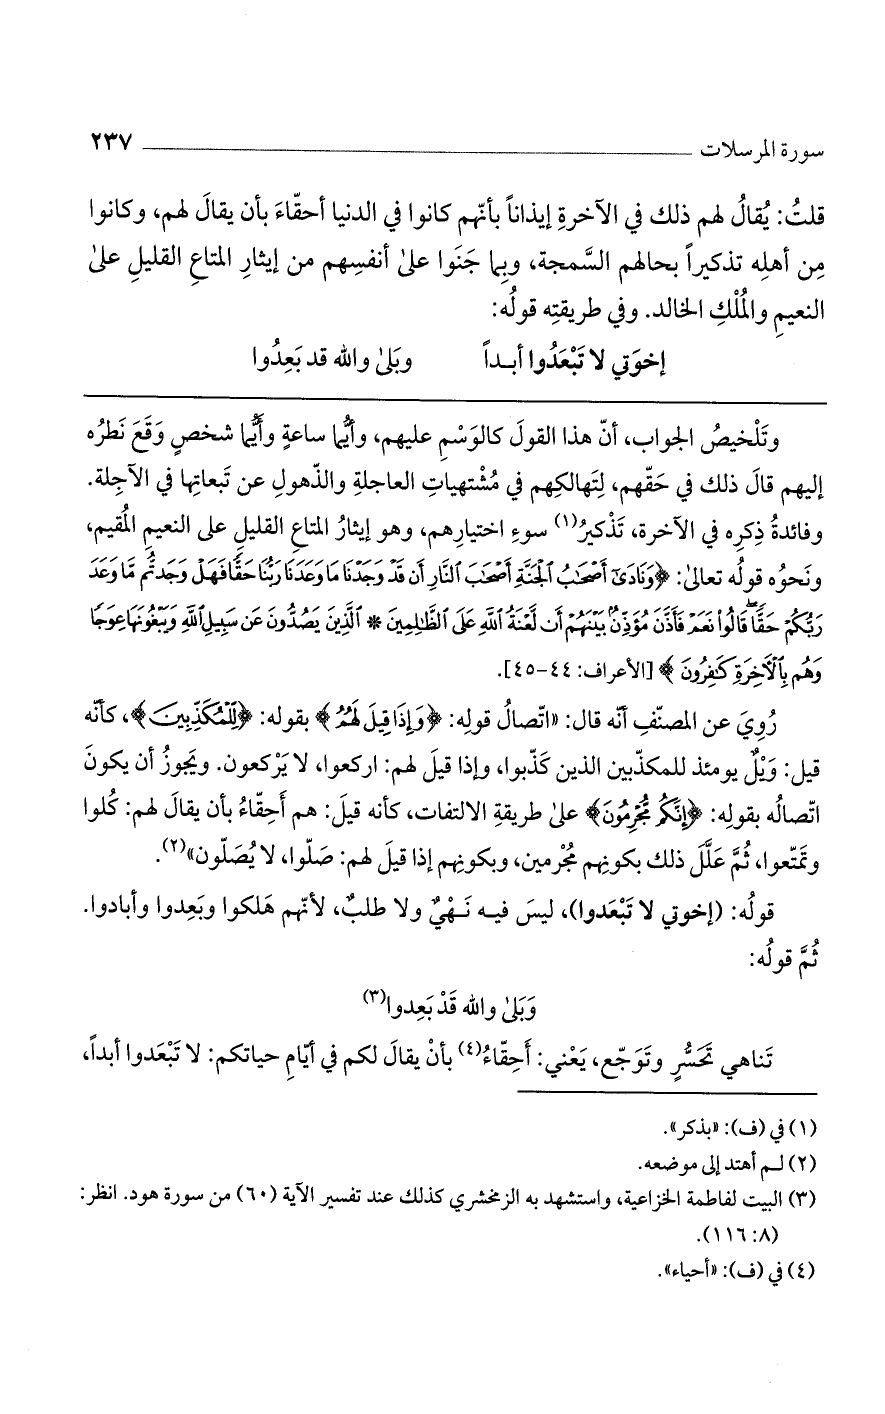 سورة المرسلات ٢٣٧
قلتُ: يُقالُ لهم ذلك في الآخرةِ إيذاناً بأنّهم كانوا في الدنيا أحقّاءَ بأن يقالَ لهم، وكانوا
مِن أهلِه تذكيراً بحالهم السَّمجة، وبِما جَنَوا علىٰ أنفسِهم من إيثارِ المتاعِ القليلِ علىٰ
النعيمِ والمُلْكِ الخالد. وفي طريقتِه قولُه:
إخوَتي لا تَبْعَدُوا أبـداً وبَلىٰ والله قد بَعِدُوا
وتَلْخيصُ الجواب، أنّ هذا القولَ كالوَسْمِ عليهم، وأيُّما ساعةٍ وأيُّما شخصٍ وَقَعَ نَظرُه
إليهم قالَ ذلك في حَقّهم، لِتَهالكِهم في مُشْتهياتِ العاجلةِ والذّهولِ عن تَبعاتِها في الآجِلة.
وفائدةُ ذِكرِه في الآخرة، تَذْكيرُ(١) سوءِ اختيارِهم، وهو إيثارُ المتاعِ القليلِ على النعيمِ المُقيم،
ونَحوُه قولُه تعالىٰ: ﴿وَنَادَىٰٓ أَصْحَٰبُ ٱلْجَنَّةِ أَصْحَٰبَ ٱلنَّارِ أَن قَدْ وَجَدْنَا مَا وَعَدَنَا رَبُّنَا حَقًّا فَهَلْ وَجَدتُّم مَّا وَعَدَ
رَبُّكُمْ حَقًّا ۖ قَالُوا۟ نَعَمْ فَأَذَّنَ مُؤَذِّنٌۢ بَيْنَهُمْ أَن لَّعْنَةُ ٱللَّهِ عَلَى ٱلظَّٰلِمِينَ * ٱلَّذِينَ يَصُدُّونَ عَن سَبِيلِ ٱللَّهِ وَيَبْغُونَهَا عِوَجًا
وَهُم بِٱلْآخِرَةِ كَٰفِرُونَ﴾ [الأعراف: ٤٤-٤٥].
رُوِيَ عن المصنّفِ أنّه قال: «اتّصالُ قولِه: ﴿وَإِذَا قِيلَ لَهُمُ﴾ بقوله: ﴿لِّلْمُكَذِّبِينَ﴾، كأنّه
قيل: وَيْلٌ يومئذ للمكذّبين الذين كَذّبوا، وإذا قيلَ لهم: اركعوا، لا يَرْكعون. ويَجوزُ أن يكونَ
اتّصالُه بقوله: ﴿إِنَّكُم مُّجْرِمُونَ﴾ علىٰ طريقةِ الالتفات، كأنه قيلَ: هم أَحِقّاءُ بأن يقالَ لهم: كُلوا
وتمتّعوا، ثُمَّ عَلَّلَ ذلك بكونِهم مُجْرمين، وبكونِهم إذا قيلَ لهم: صَلّوا، لا يُصَلّون»(٢).
قولُه: (إخوتي لا تَبْعَدوا)، ليسَ فيـه نَـهْيٌ ولا طلبٌ، لأنّهم هَلكوا وبَعِدوا وأبادوا.
ثُمَّ قولُه:
وَبَلىٰ والله قَدْ بَعِدوا(٣)
تَناهي تَحَسُّرٍ وتَوَجّع، يَعْني: أَحِقّاءُ(٤) بأنْ يقالَ لكم في أيّامِ حياتكم: لا تَبْعَدوا أبداً،
(١) في (ف): «بذكر».
(٢) لـم أهتد إلى موضعه.
(٣) البيت لفاطمة الخزاعية، واستشهد به الزمخشري كذلك عند تفسير الآية (٦٠) من سورة هود. انظر:
(٨: ١١٦).
(٤) في (ف): «أحياء».